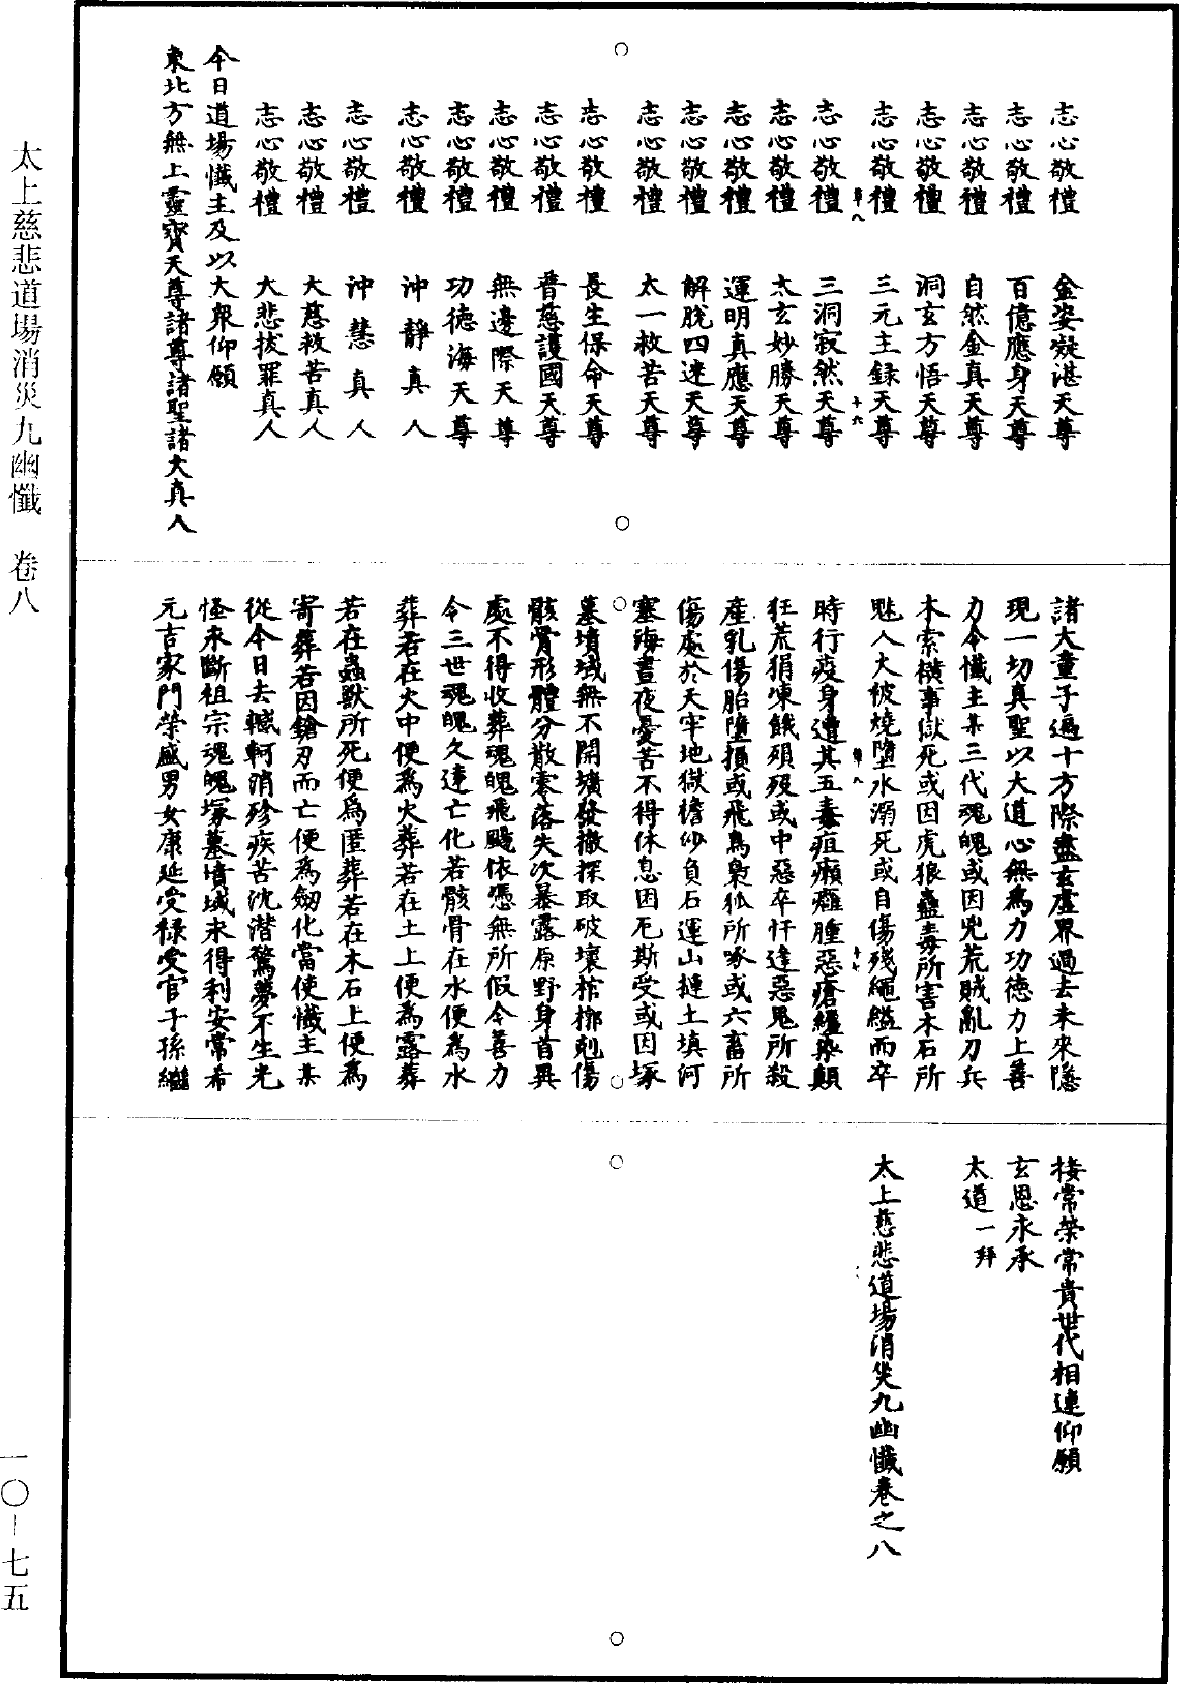 志心敬禮　金姿凝湛天尊
志心敬禮　百億應身天尊
志心敬禮　自然金真天尊
志心敬禮　洞玄方悟天尊
志心敬禮　三元主錄天尊
志心敬禮　三洞寂然天尊
志心敬禮　太玄妙勝天尊
志心敬禮　運明真應天尊
志心敬禮　解脫四達天尊
志心敬禮　太一救苦天尊
志心敬禮　長生保命天尊
志心敬禮　普慈護國天尊
志心敬禮　無邊際天尊
志心敬禮　功德海天尊
志心敬禮　沖靜真人
志心敬禮　沖慧真人
志心敬禮　大慈救苦真人
志心敬禮　大悲拔罪真人
今日道場懺主及以大衆仰願
東北方無上靈寶天尊諸尊諸聖諸大真人
諸大童子遍十方際盡玄虛界過去未來隱
現一切真聖以大道心無為力功德力上善
力令懺主某三代魂魄或因兇荒賊亂刀兵
木索橫事獄死或因虎狼蠱毒所害木石所
魅人火被燒墮水溺死或自傷殘繩縊而卒
時行疫身遭其五毒疽癩癰腫惡瘡纏染顛
狂荒狷凍餓殞歿或中惡卒忤逢惡鬼所殺
產乳傷胎墮損或飛鳥梟狐所啄或六畜所
傷處於天牢地獄擔沙負石運山揵土填河
塞海晝夜憂苦不得休息因厄斯受或因塚
墓墳域無不開壙發撤探取破壞棺槨剋傷
骸骨形體分散零落失次暴露原野身首異
處不得收葬魂魄飛颺依憑無所假令善力
令三世魂魄久達亡化若骸骨在水便為水
葬若在火中便為火葬若在土上便為露葬
若在蟲獸所死便為匿葬若在木石上便為
寄葬若因鎗刃而亡便為劒化當使懺主某
從今日去轗軻消殄疾苦沈潛驚夢不生光
怪永斷祖宗魂魄塚墓墳域永得利安常希
元吉家門榮盛男女康延受祿受官子孫繼
接常榮常貴世代相連仰願
玄恩永承
太道一拜
太上慈悲道場消災九幽懺卷之八
太上慈悲道場消災九幽懺　卷八
一〇－七五